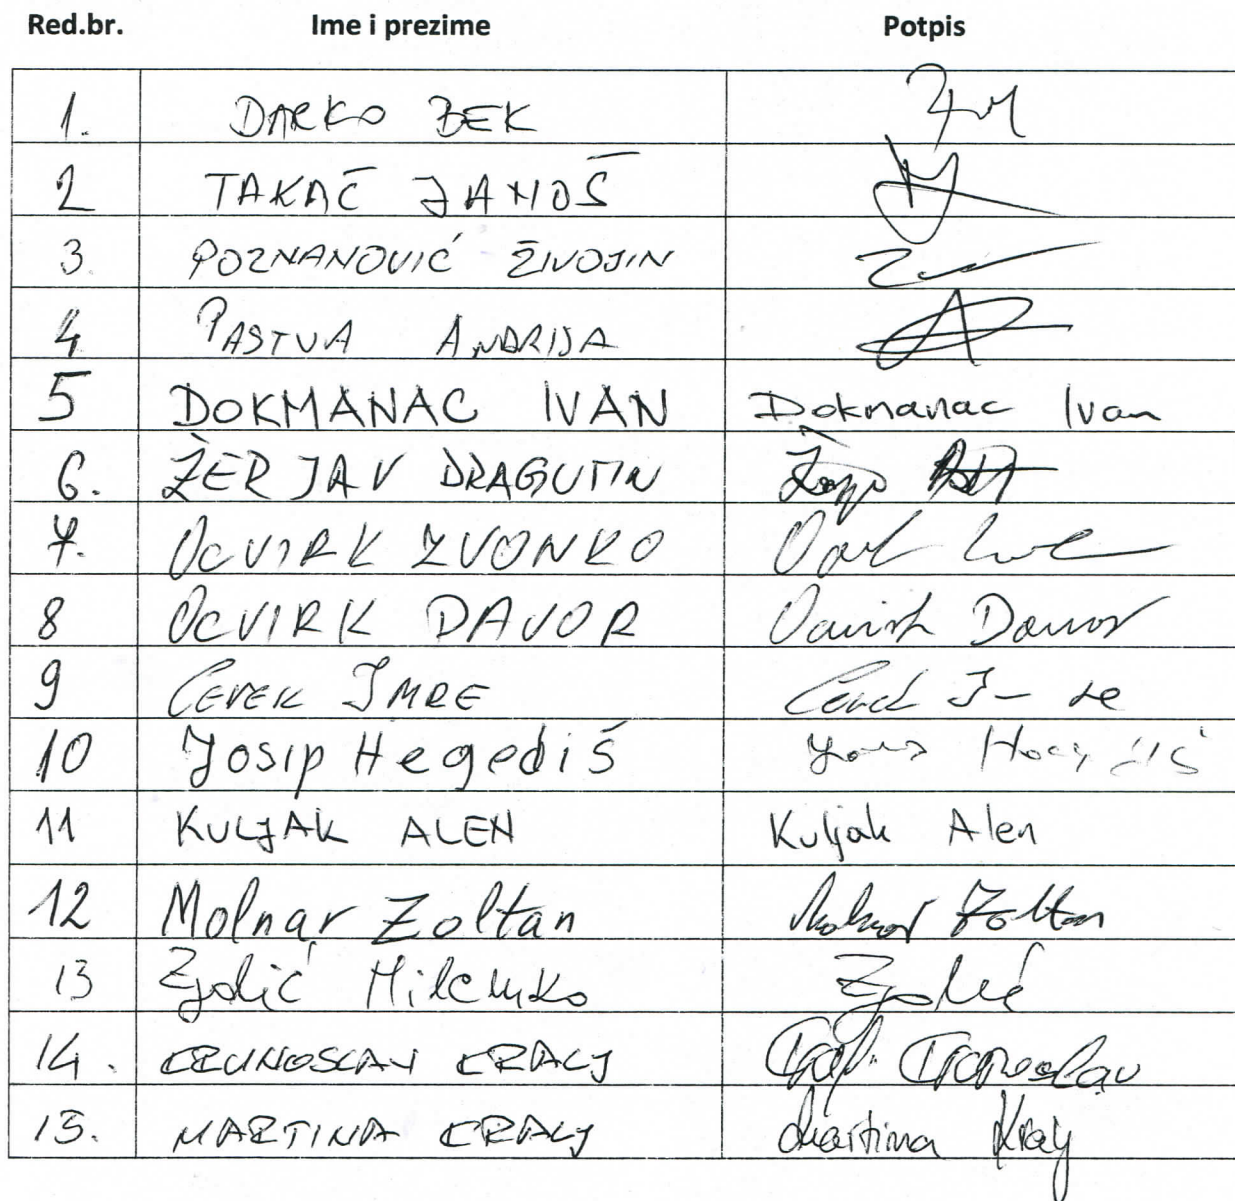 Red.br. Ime i prezime Potpis
1. DARKO BEK
2 TAKAČ JANOŠ
3. POZNANOVIĆ ŽIVOJIN
4 PASTVA ANDRIJA
5 DOKMANAC IVAN Dokmanac Ivan
6. ŽERJAV DRAGUTIN
7. OCVIRK ZVONKO
8 OCVIRK DAVOR Ocvirk Davor
9 CEVEK IMRE
10 Josip Hegediš
11 KULJAK ALEN Kuljak Alen
12 Molnar Zoltan Molnar Zoltan
13 Zjalić Milenko Zjalić
14. KRUNOSLAV KRALJ Kralj Krunoslav
15. MARTINA KRALJ Martina Kralj